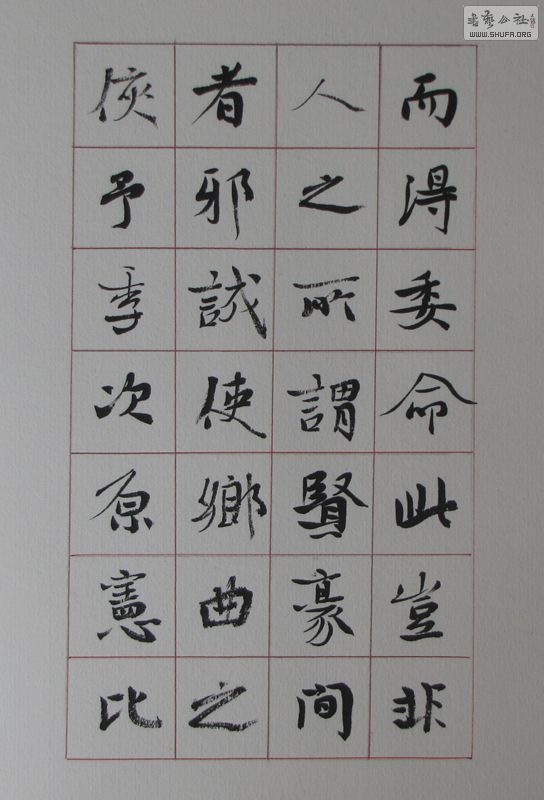 而得委命此豈非
人之所謂賢豪間
者邪誠使鄉曲之
俠予季次原憲比
書藝公社
WWW.SHUFA.ORG